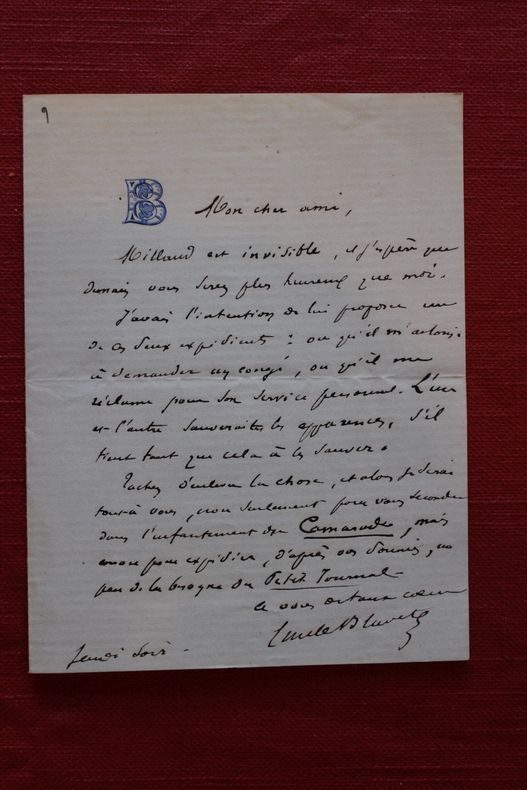 9
B
Mon cher ami,
Millaud est invisible, et j'espère que
demain vous serez plus heureux que moi.
J'avais l'intention de lui proposer un
de ces deux expédients : ou qu'il m'autorise
à demander un congé, ou qu'il me
réclame pour son service personnel. L'un
et l'autre sauveraient les apparences, s'il
tient tant que cela à les sauver.
Tachez d'enlever la chose, et alors je serai
tout à vous, non seulement pour vous seconder
dans l'enfantement du Camarade, mais
encore pour expédier, d'après vos données, un
peu de la besogne du Petit Journal
A vous de tout cœur
Emile Blavet
Jeudi soir.